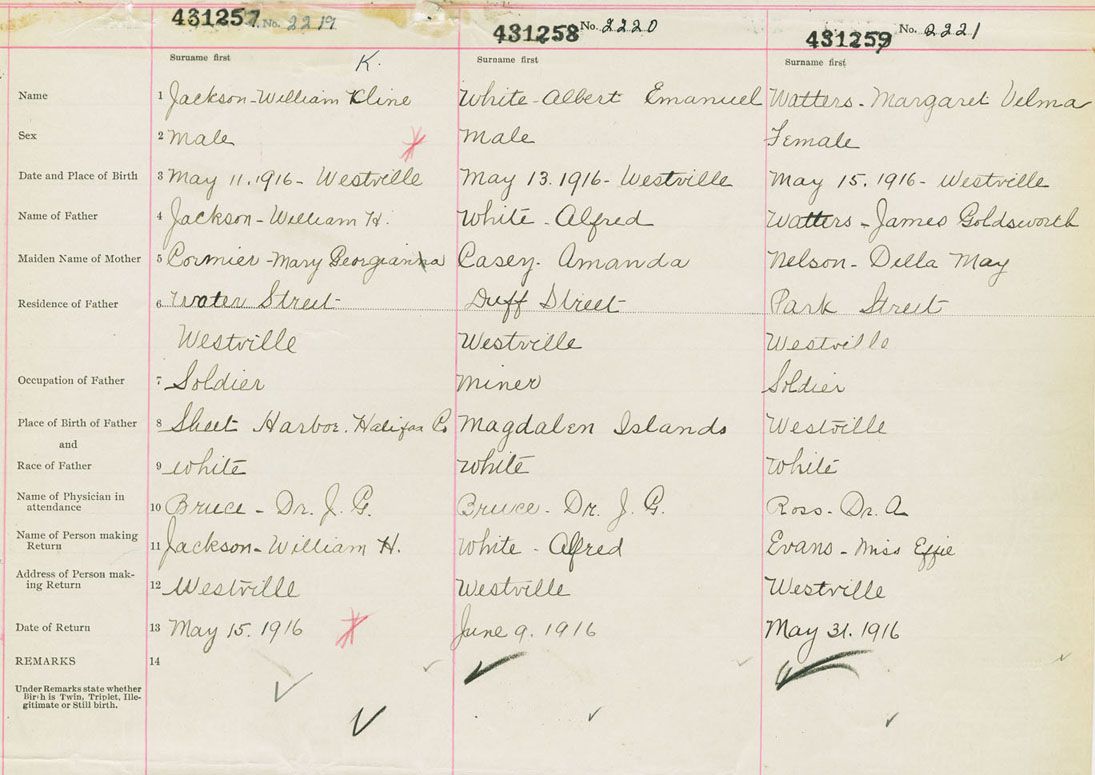 431257 No. 2219
431258 No. 2220
431259 No. 2221
Surname first K.
Surname first
Surname first
Name 1 Jackson-William Kline White-Albert Emanuel Watters-Margaret Velma
Sex 2 Male Male Female
Date and Place of Birth 3 May 11.1916- Westville May 13.1916- Westville May 15.1916- Westville
Name of Father 4 Jackson-William H. White-Alfred Watters-James Goldsworth
Maiden Name of Mother 5 Cormier-Mary Georgianna Casey. Amanda Nelson-Della May
Residence of Father 6 Water Street Duff Street Park Street
Westville Westville Westville
Occupation of Father 7 Soldier Miner Soldier
Place of Birth of Father 8 Sheet Harbor. Halifax Co Magdalen Islands Westville
and
Race of Father 9 White White White
Name of Physician in
attendance 10 Bruce-Dr. J. G. Bruce-Dr. J. G. Ross-Dr. A
Name of Person making
Return 11 Jackson-William H. White-Alfred Evans-Miss Effie
Address of Person mak-
ing Return 12 Westville Westville Westville
Date of Return 13 May 15. 1916 June 9. 1916 May 31. 1916
REMARKS 14
Under Remarks state whether
Birth is Twin, Triplet, Ille-
gitimate or Still birth.